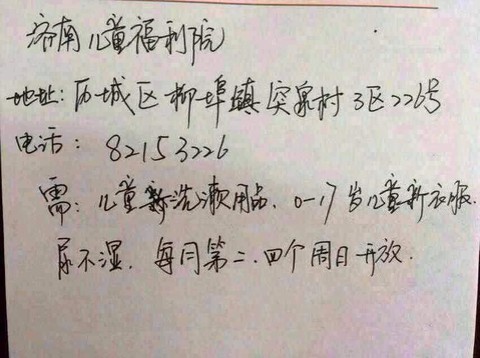 济南儿童福利院
地址:历城区柳埠镇突泉村3区226号
电话: 82153226
需:儿童新洗漱用品、0-17岁儿童新衣服.
尿不湿. 每月第二.四个周日开放.